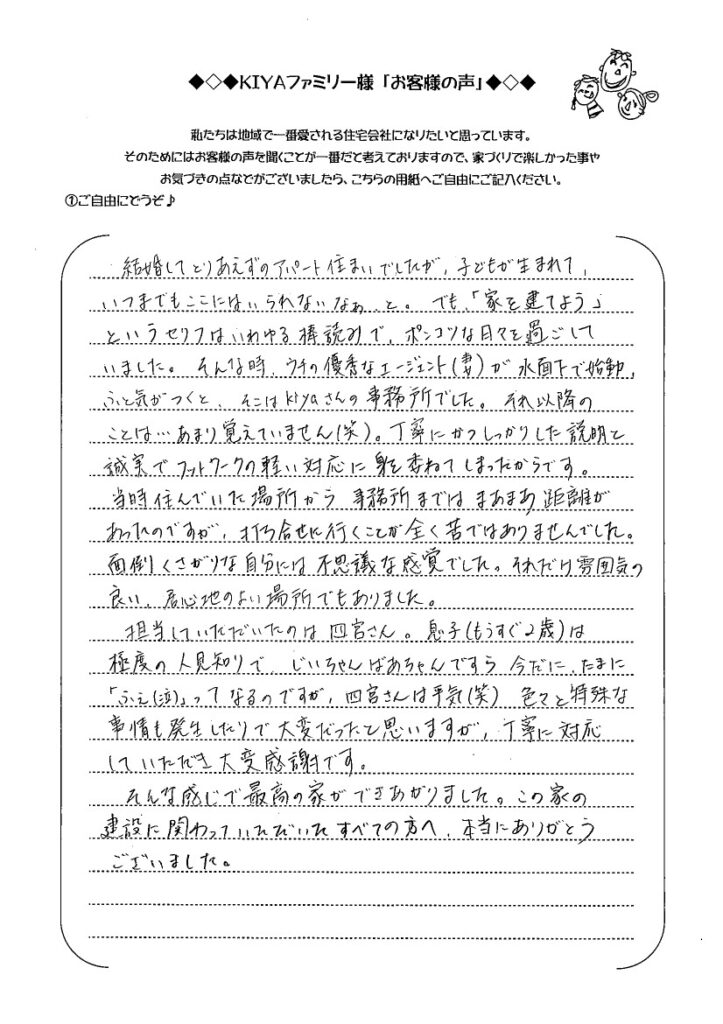 ◆◇◆KIYAファミリー様「お客様の声」◆◇◆
私たちは地域で一番愛される住宅会社になりたいと思っています。
そのためにはお客様の声を聞くことが一番だと考えておりますので、家づくりで楽しかった事や
お気づきの点などがございましたら、こちらの用紙へご自由にご記入ください。
①ご自由にどうぞ♪
結婚してとりあえずのアパート住まいでしたが、子どもが生まれて、
いつまでもここにはいられないなぁ、と。でも、「家を建てよう」
というセリフはいわゆる棒読みで、ポンコツな日々を過ごして
いました。そんな時、ウチの優秀なエージェント(妻)が水面下で始動、
ふと気がつくと、そこはkiyaさんの事務所でした。それ以降の
ことは…あまり覚えていません(笑)。丁寧にかつしっかりした説明と
誠実でフットワークの軽い対応に身を委ねてしまったからです。
当時住んでいた場所から事務所まではまあまあ距離が
あったのですが、打ち合せに行くことが全く苦ではありませんでした。
面倒くさがりな自分には不思議な感覚でした。それだけ雰囲気の
良い、居心地のよい場所でもありました。
担当していただいたのは四宮さん。息子(もうすぐ2歳)は
極度の人見知りで、じいちゃんばあちゃんですら今だに、たまに
「ふぇ(泣)」ってなるのですが、四宮さんは平気(笑) 色々と特殊な
事情も発生したりで大変だったと思いますが、丁寧に対応
していただき大変感謝です。
そんな感じで最高の家ができあがりました。この家の
建設に関わっていただいたすべての方へ、本当にありがとう
ございました。